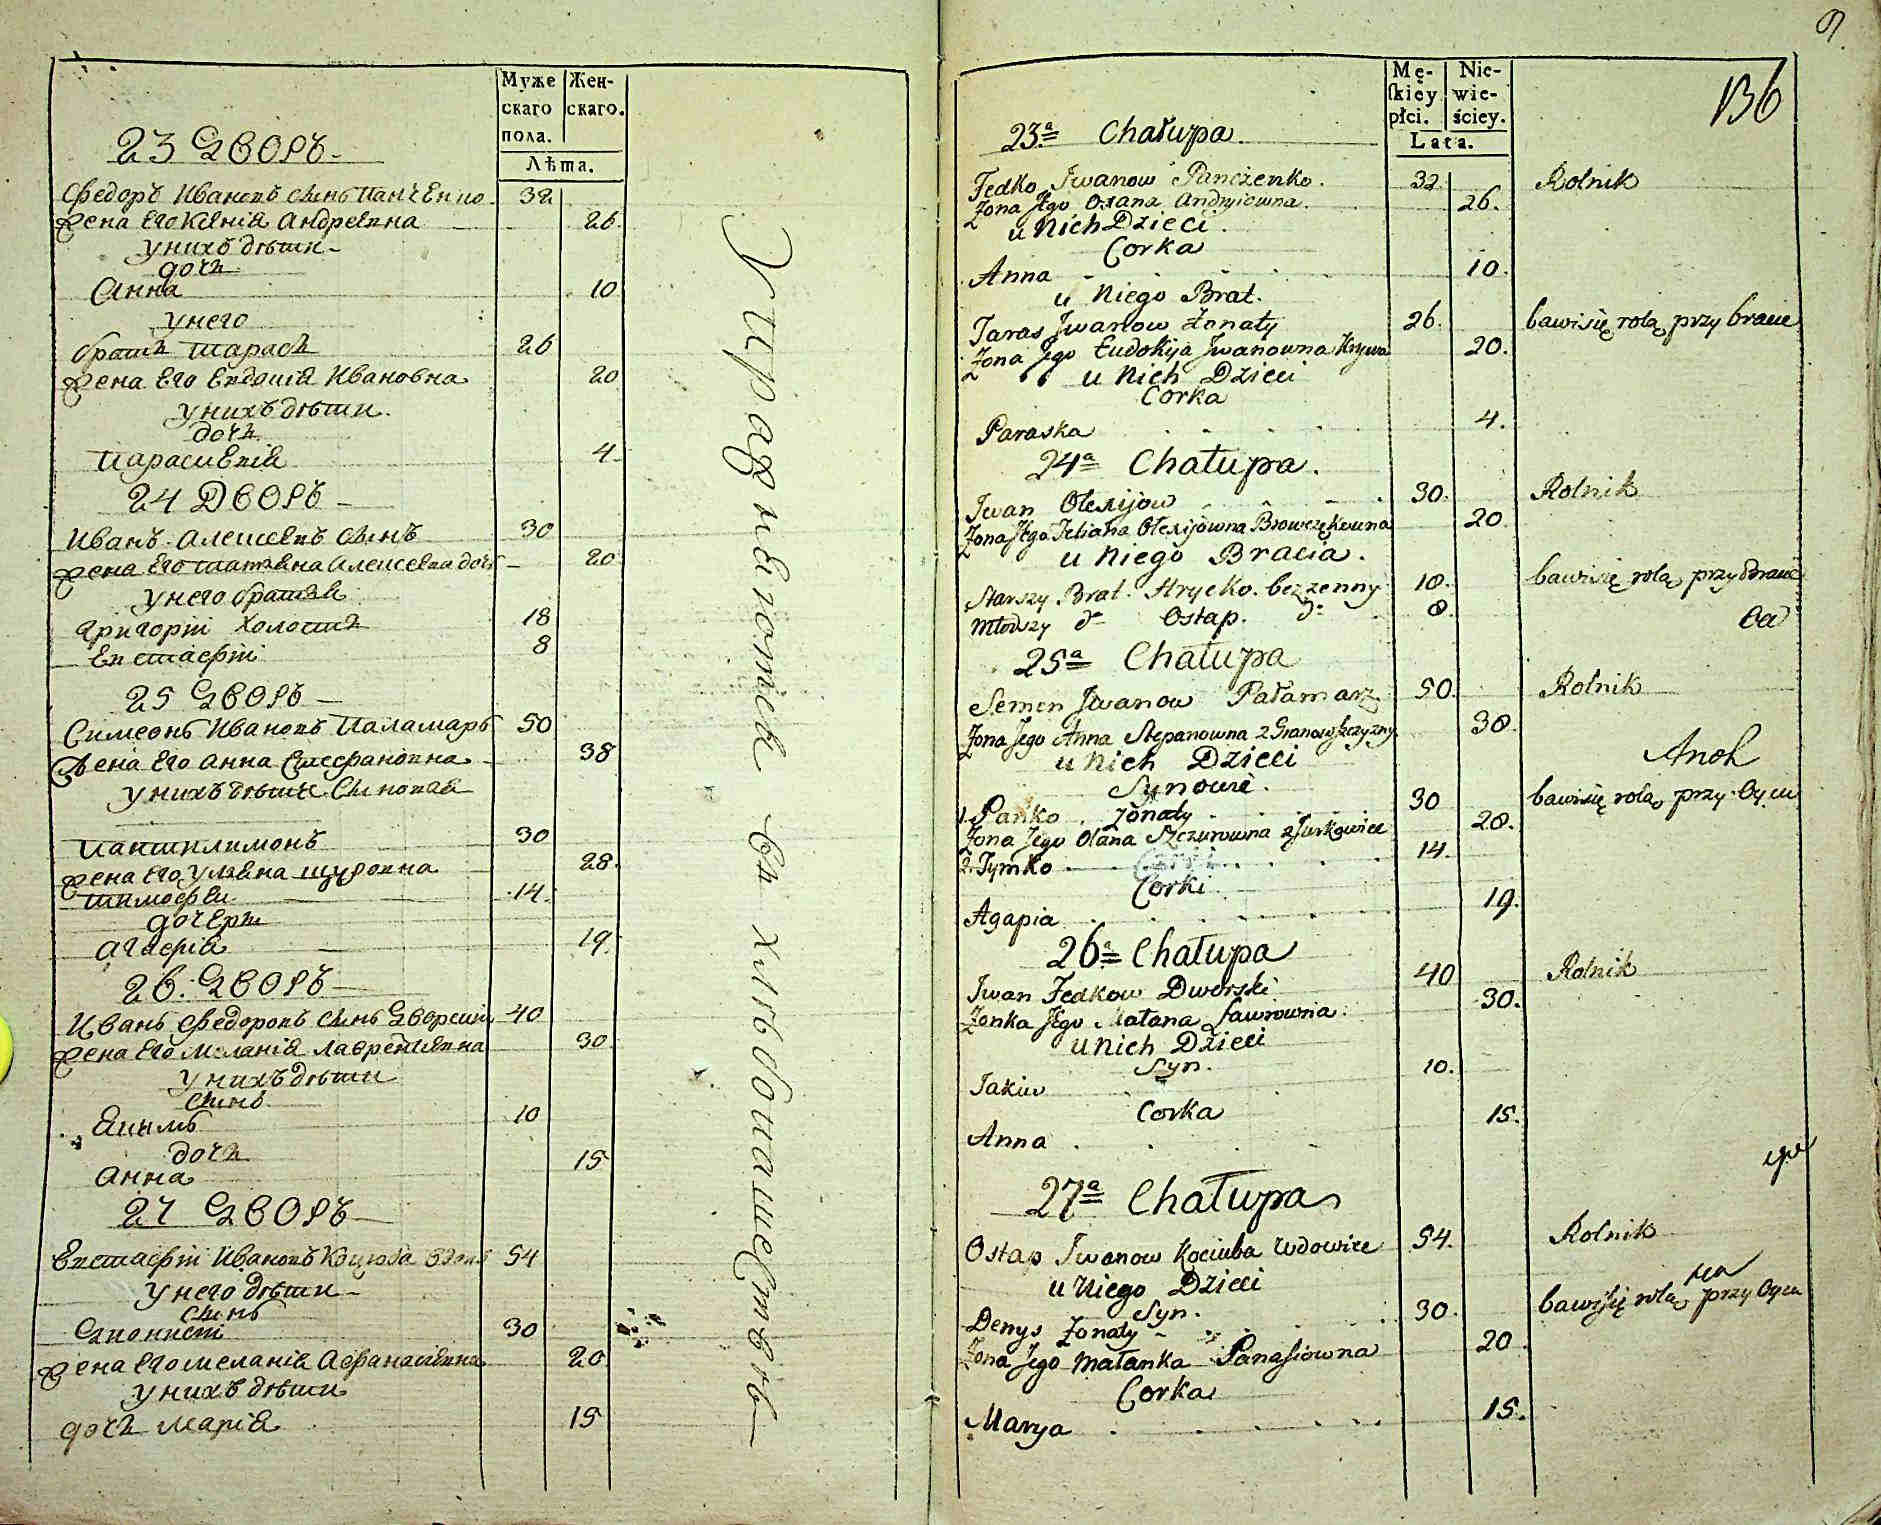 Муже
скаго
пола.
Жен-
скаго.
Лѣта.
23 Дворъ
Федоръ Ивановъ сынъ Панченко 32
Жена Его Ксенія Андреевна 26.
у нихъ дѣти
дочь
Анна 10
у него
братъ Тарасъ 26
Жена Его Евдокія Ивановна 20
у нихъ дѣти.
дочь
Параскевія 4
24 Дворъ
Иванъ Алексеевъ сынъ 30
Жена Его Татіяна Алексеева дочь 20
у него братья
Григорій холостъ 18
Евстафій 8
25 Дворъ
Симеонъ Ивановъ Паламаръ 50
Жена Его Анна Стефановна 38
у нихъ дѣти Сыновья
Пантилимонъ 30
Жена Его Ульяна Щуровна 28.
Тимофей 14.
дочери
Агафія 19.
26. Дворъ
Иванъ Федоровъ сынъ Дворскій 40
Жена Его Меланія Лаврентіевна 30
у нихъ дѣти
сынъ
Якимъ 10
дочь
Анна 15
27 Дворъ
Евстафій Ивановъ Коцюба вдовъ 54
у него дѣти
сынъ
Діонисій 30
Жена Его Меланія Афанасіевна 20
у нихъ дѣти
дочь Марія 15
Упражняются въ хлѣбопашествѣ
9.
136
Mę-
ſkiey
płci.
Nie-
wie-
ściey.
Lata.
23.ª Chałupa
Fedko Iwanow Panczenko. 32 Rolnik
Zona Jego Oxana Andryiowna. 26.
u Nich Dzieci.
Corka
Anna 10.
u Niego Brat.
Taras Iwanow Zonaty 26. bawi się rolą przy bracie
Zona Jego Eudokija Iwanowna Krywa 20.
u Nich Dzieci
Corka
Paraska 4.
24ª Chałupa.
Iwan Olexijow 30. Rolnik
Zona Jego Teliana Olexijowna Browczękowna 20
u Niego Bracia.
Starszy Brat Hrycko bezzenny 18. bawi się rolą przy Bracie
Młodszy dº Ostap. dº 8.
25ª Chałupa
Semen Iwanow Pałamarz 50. Rolnik
Zona Jego Anna Stepanowna z Granowszczyzny 38.
u Nich Dzieci
Synowie.
1. Pańko. Zonaty 30 bawi się rolą przy Oycu
Zona Jego Olana Szczurowna z Jurkowiec 28.
2. Tymko 14.
Corki
Agapia 19.
26ª Chałupa
Iwan Fedkow Dworski 40 Rolnik
Zonka Jego Małana Ławrowna. 30.
u Nich Dzieci
Syn.
Jakiw 10.
Corka
Anna 15.
27ª Chałupa
Ostap Iwanow Kociuba Wdowiec 54. Rolnik
u Niego Dzieci
Syn.
Denys Zonaty 30. bawi się rolą przy Oycu
Zona Jego Małanka Panasiowna 20.
Corka
Marya 15.